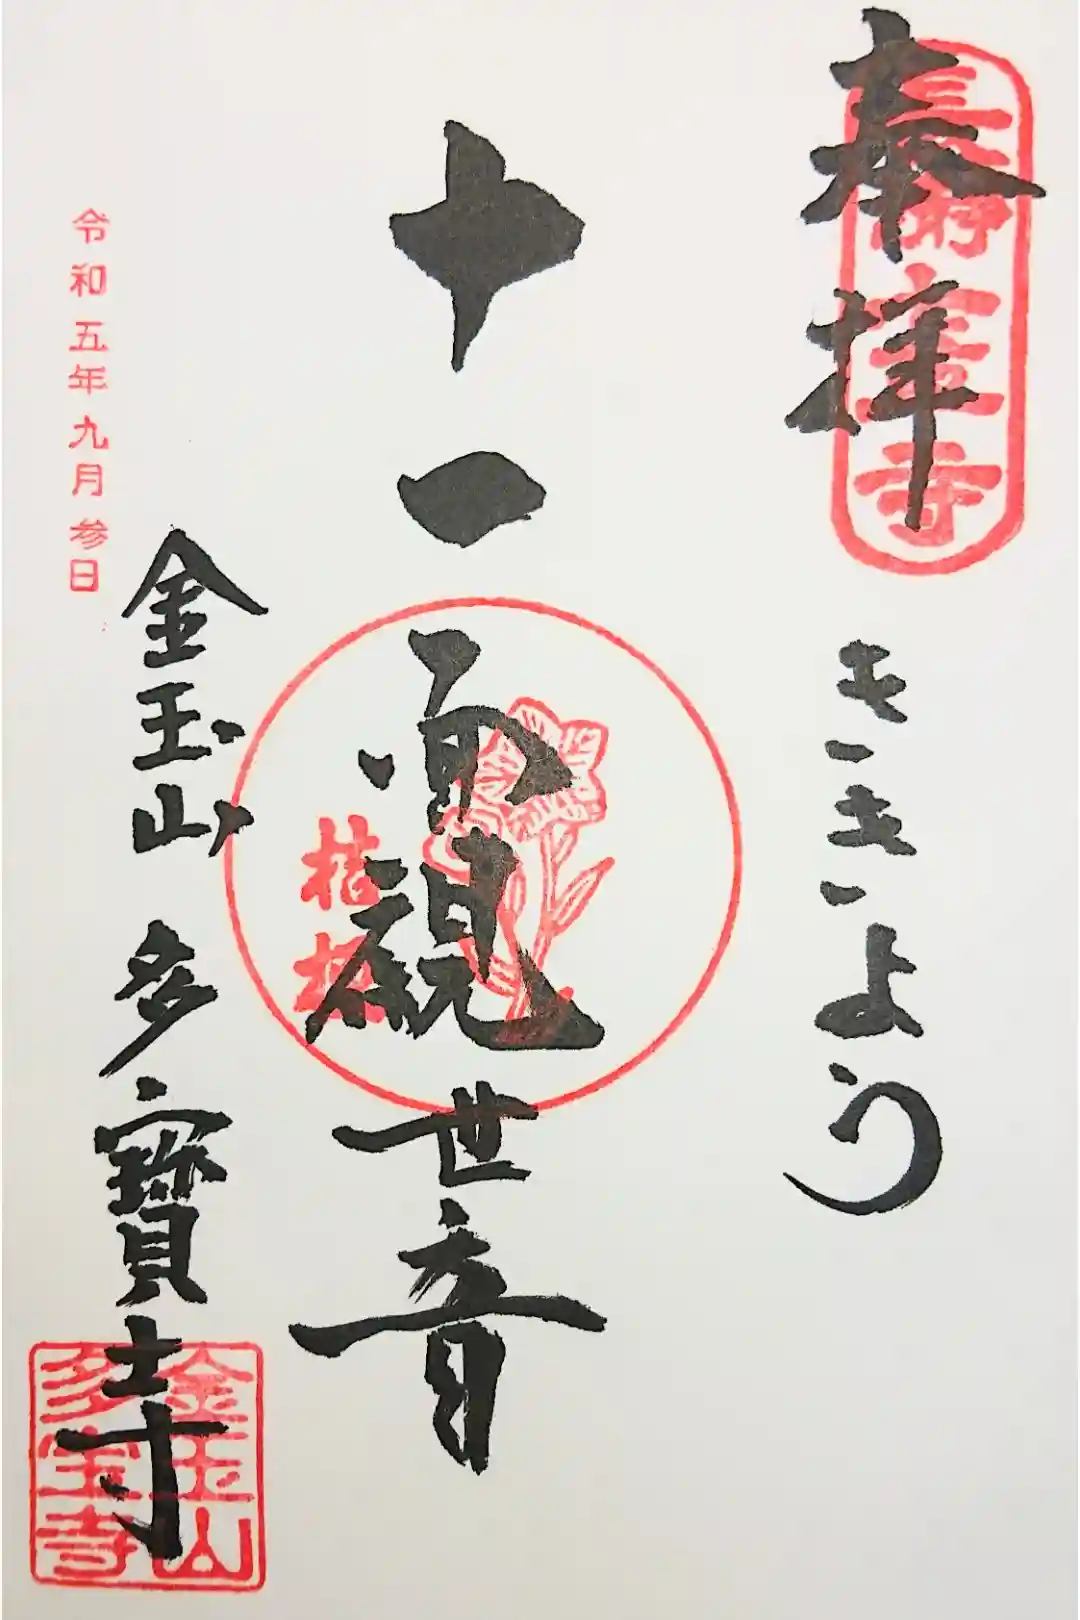 奉拝
ききよう
十一面観世音
桔梗
金玉山 多寳寺
金玉山
多宝寺
令和五年九月参日